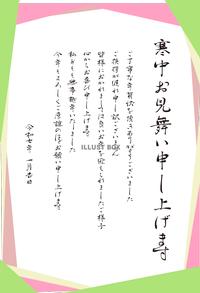 寒中お見舞い申し上げます
ご丁寧な年賀状を頂きありがとうございます
ご挨拶が遅れ申し訳ございません
皆様におかれましては良いお年を迎えられたご様子
心からお喜び申し上げます
私どもも無事越年いたしました
今年もよろしくご厚誼のほどお願い申し上げます
令和七年 一月吉日
ILLUST BOX